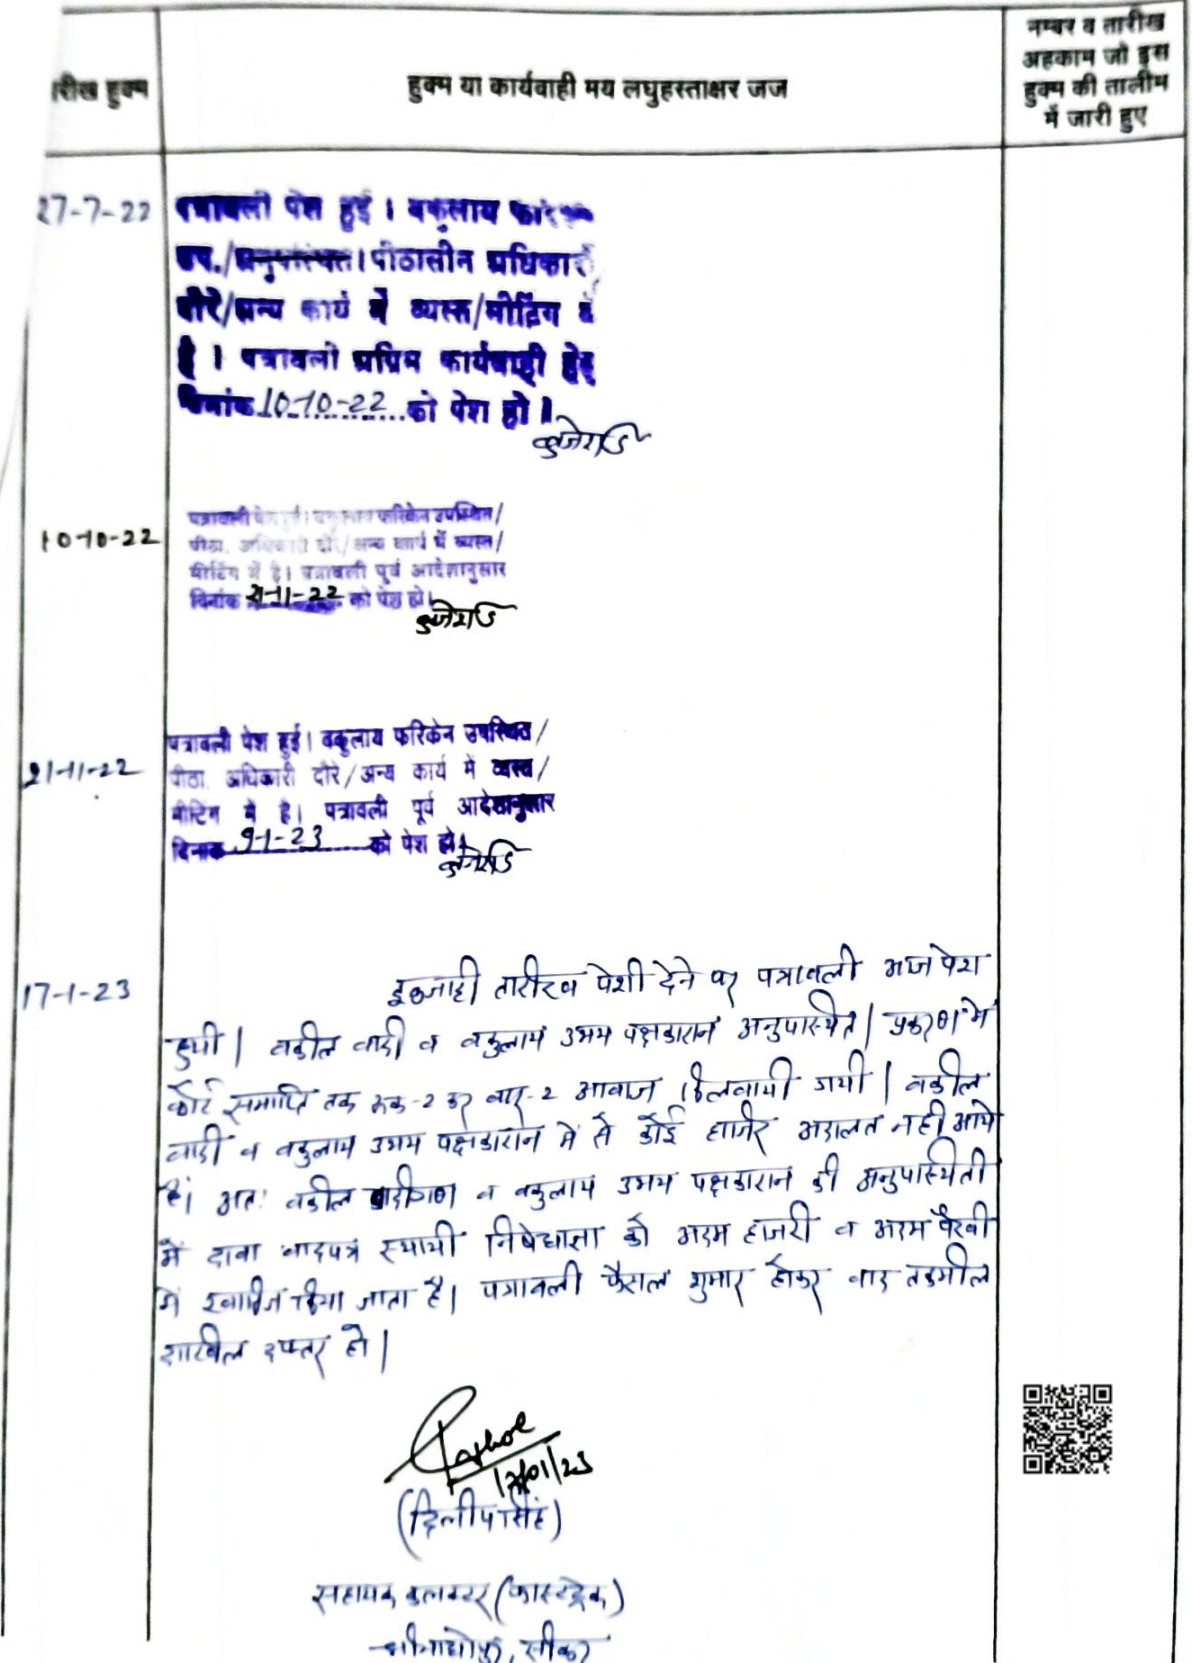 रीख हुक्म
हुक्म या कार्यवाही मय लघुहस्ताक्षर जज
नम्बर व तारीख
अहकाम जो इस
हुक्म की तालीम
में जारी हुए
27-7-22
पत्रावली पेश हुई । वकुलाय
उप./अनुपस्थित। पीठासीन अधिकारी
दौरे/अन्य कार्य में व्यस्त/मीटिंग में
है । पत्रावली अग्रिम कार्यवाही हेतु
दिनांक 10-10-22 को पेश हो ।
10-10-22
पत्रावली पेश हुई। वकुलाय फरिकेन उपस्थित/
पीठा. अधिकारी दौरे/अन्य कार्य में व्यस्त/
मीटिंग में है। पत्रावली पूर्व आदेशानुसार
दिनांक 21-11-22 को पेश हो।
21-11-22
पत्रावली पेश हुई। वकुलाय फरिकेन उपस्थित/
पीठा. अधिकारी दौरे/अन्य कार्य में व्यस्त/
मीटिंग में है। पत्रावली पूर्व आदेशानुसार
दिनांक 9-1-23 को पेश हो।
17-1-23
तारीख पेशी देने पर पत्रावली आज पेश
हुयी। वकील वादी व वकुलाय उभय पक्षकारान अनुपास्थित। प्रकरण में
कोर्ट समाप्ति तक रूक-2 कर बार-2 आवाज दिलवायी गयी। वकील
वादी व वकुलाय उभय पक्षकारान में से कोई हाजिर अदालत नही आये
है। अतः वकील वादीगण व वकुलाय उभय पक्षकारान की अनुपास्थिती
में दावा वादपत्र स्थायी निषेधाज्ञा को अदम हाजरी व अदम पैरवी
में खारीज किया जाता है। पत्रावली फैसल शुमार होकर बाद तकमील
दाखिल दफ्तर हो।
17/01/23
(दिलीपसिंह)
सहायक कलक्टर (फास्टट्रेक)
श्रीमाधोपुर, सीकर